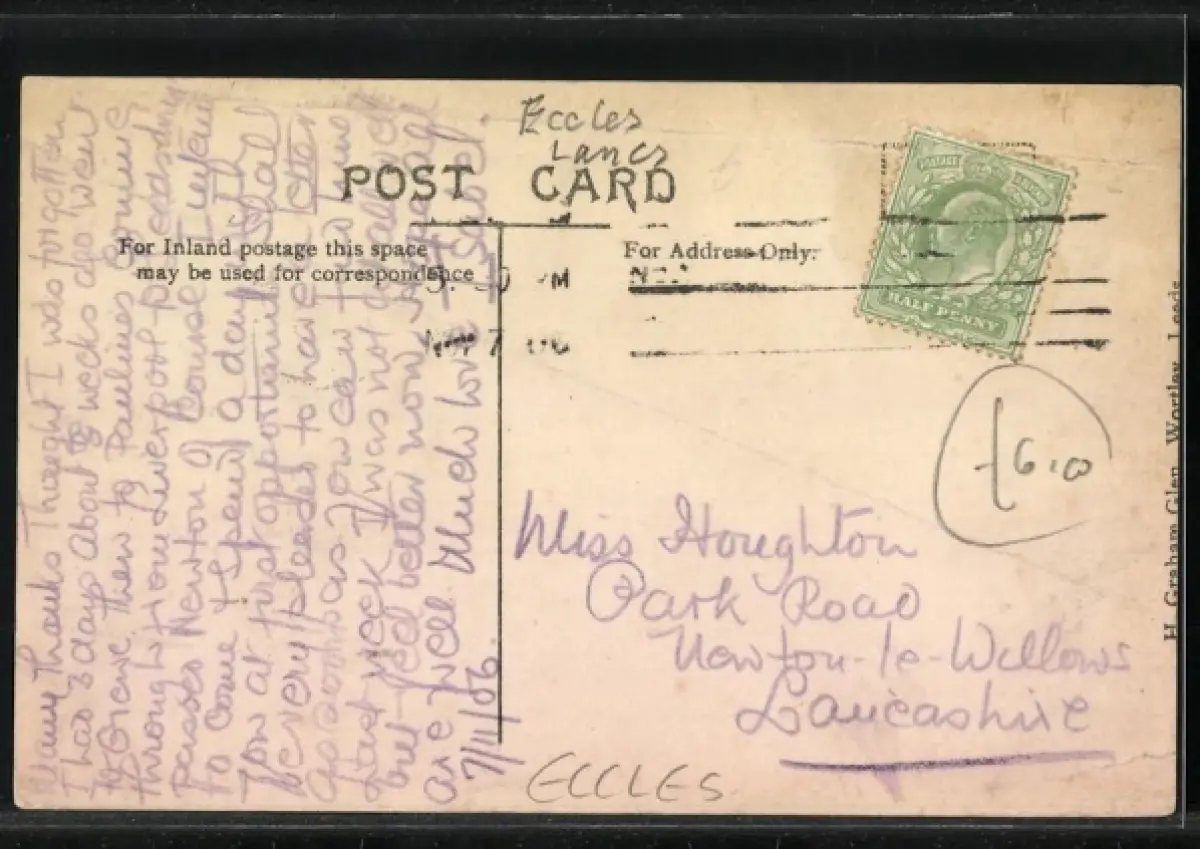 Eccles
Lancs
POST CARD
For Inland postage this space
may be used for correspondence
For Address Only.
PM
7 06
POSTAGE
HALF PENNY
£6.00
Miss Houghton
Park Road
Newton-le-Willows
Lancashire
ECCLES
H. Graham Glen, Wortley, Leeds
Many Thanks Thought I was forgotten
I had 3 days about weeks ago went
to then to Paulines coming
through from Liverpool Wednesday
passed Newton of course I mean
to come & spend a day with
you at first opportunity shall
be very pleased to have letter
as soon as you can
last week I was not at all well
but feel better now
are well. Much love
7/11/06